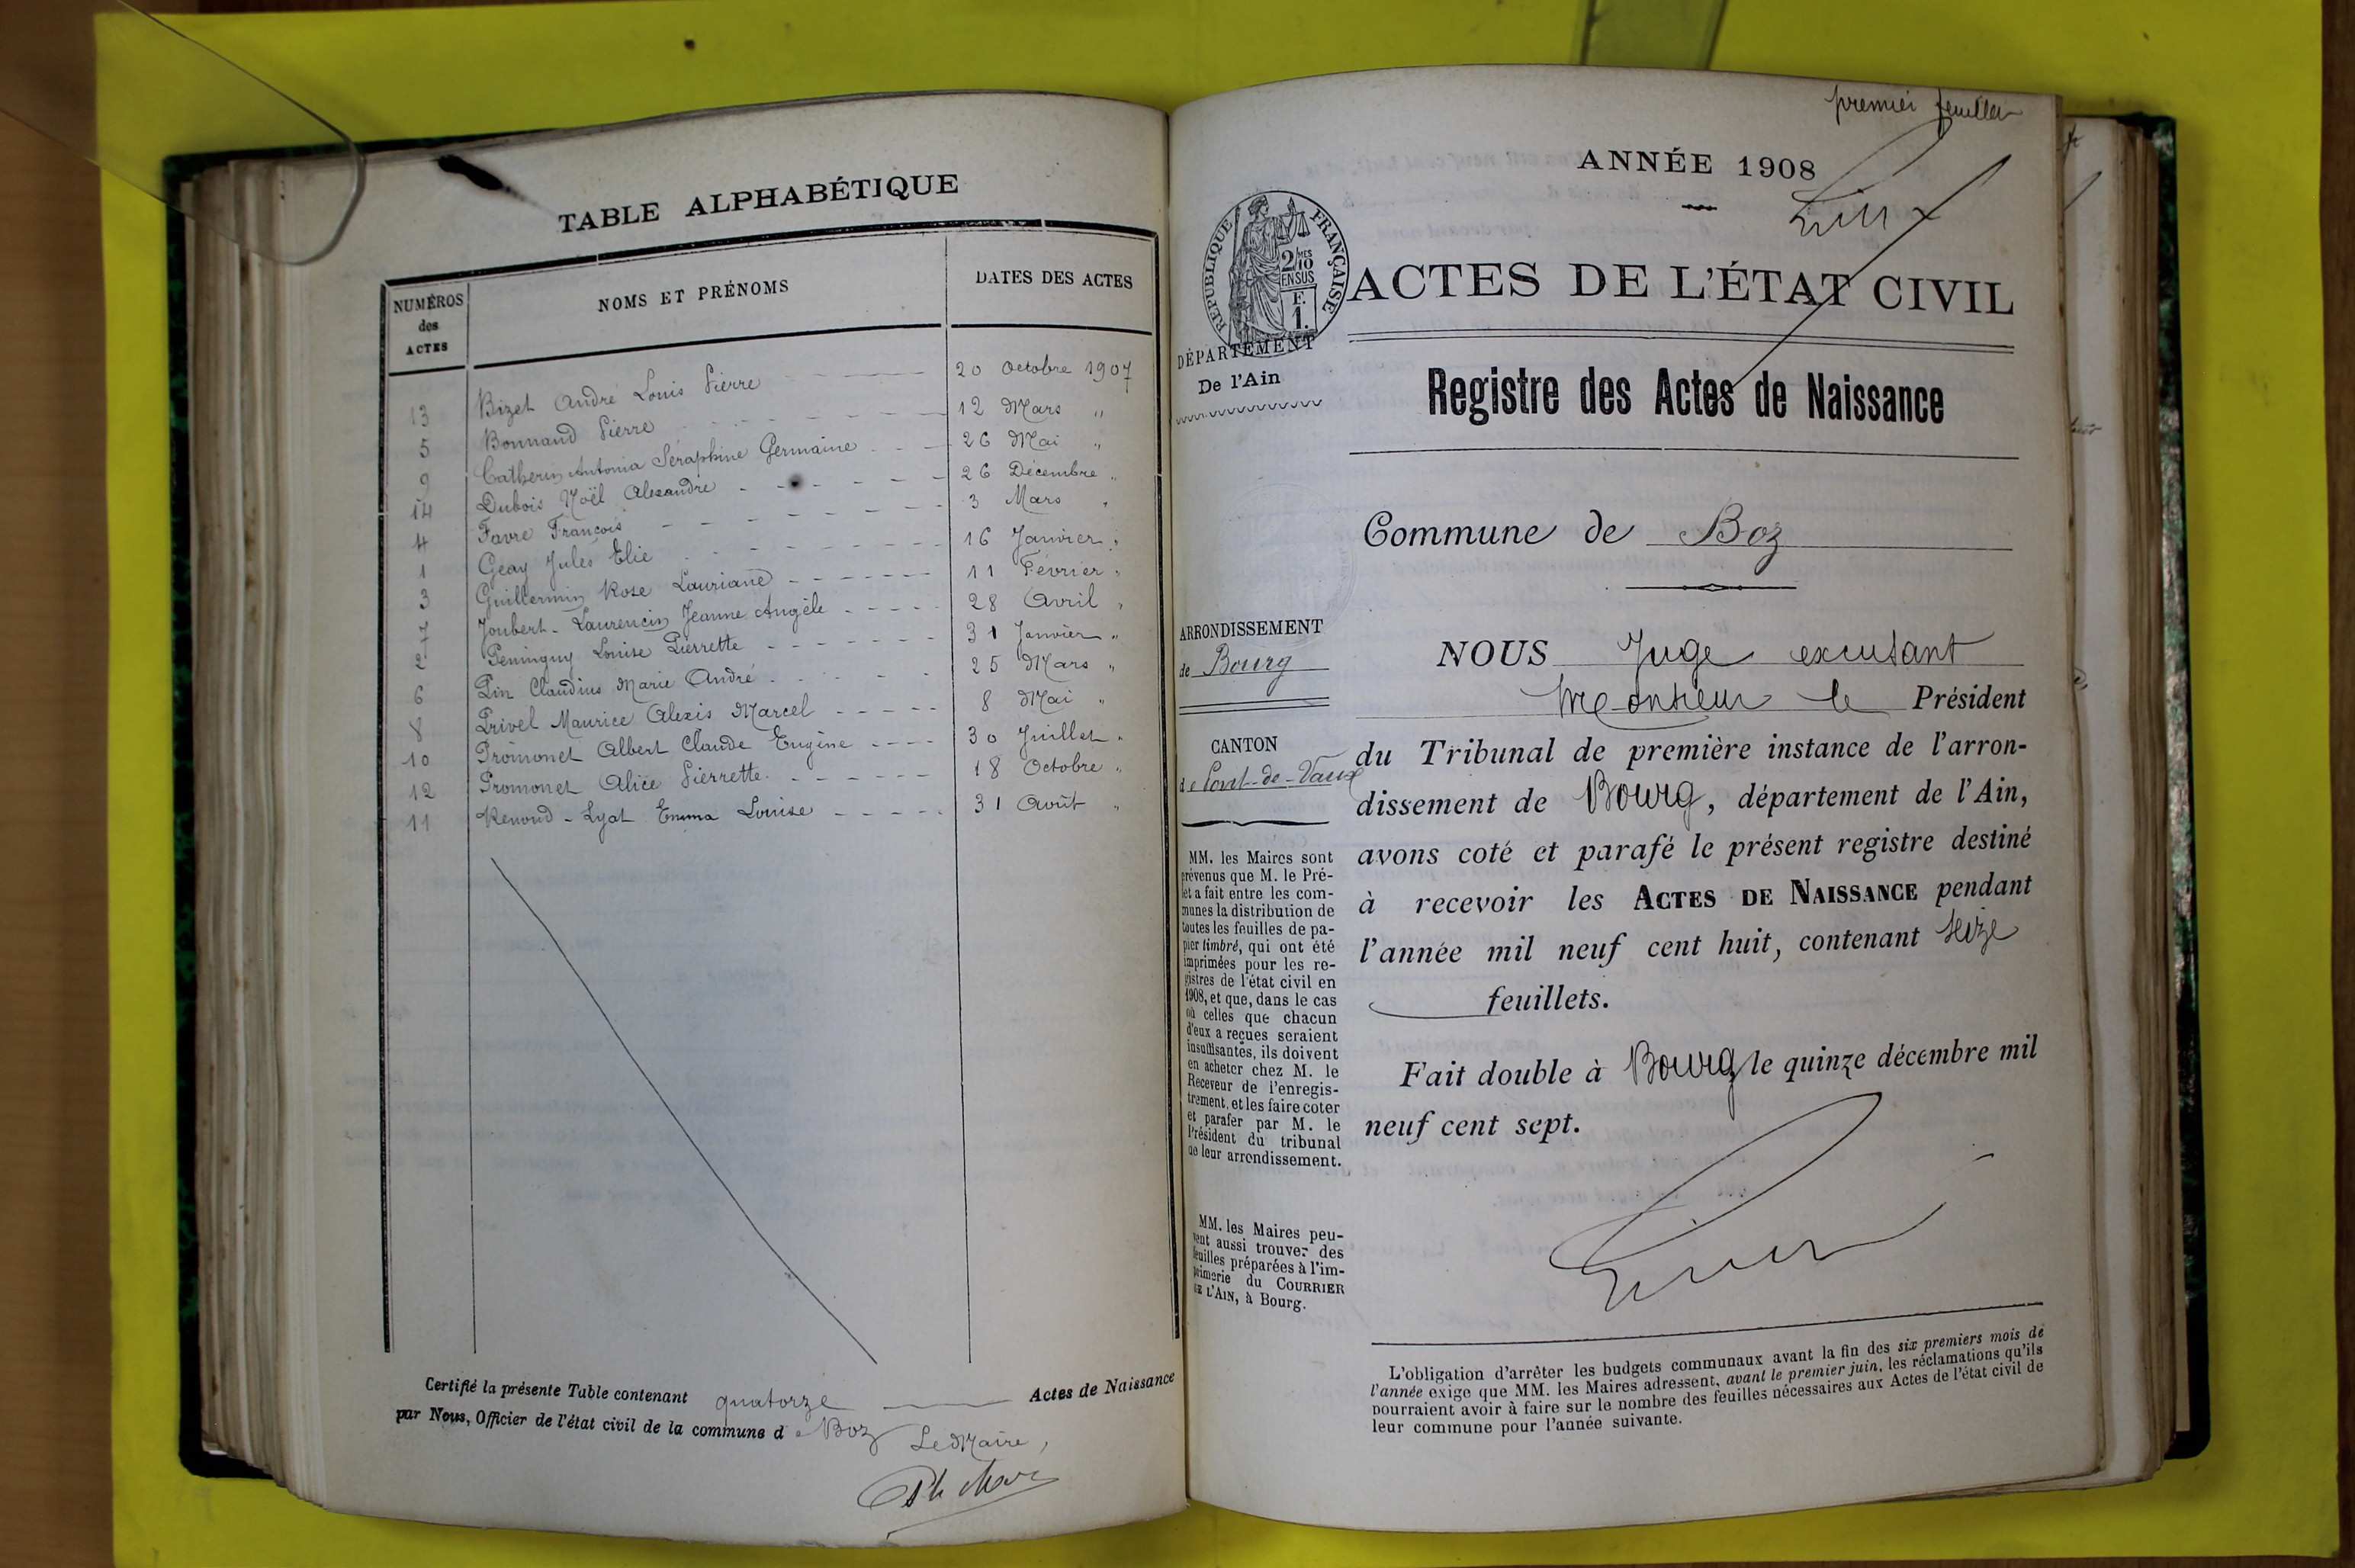 TABLE ALPHABÉTIQUE
NUMÉROS des ACTES
NOMS ET PRÉNOMS
DATES DES ACTES
13 Bizet André Louis Pierre 20 Octobre 1907
5 Bonnand Pierre 12 Mars "
9 Catherin Antonia Séraphine Germaine 26 Mai "
14 Dubois Noël Alexandre 26 Décembre "
4 Favre François 3 Mars "
1 Geay Jules Elie 16 Janvier "
3 Guillermin Rose Lauriane 11 Février "
7 Joubert-Laurencin Jeanne Angèle 28 Avril "
2 Peninguy Louise Pierrette 31 Janvier "
6 Pin Claudius Marie André 25 Mars "
8 Privel Maurice Alexis Marcel 8 Mai "
10 Promonet Albert Claude Eugène 30 Juillet "
12 Promonet Alice Pierrette 18 Octobre "
11 Renoud-Lyat Emma Louise 31 Août "
Certifié la présente Table contenant quatorze Actes de Naissance
par Nous, Officier de l'état civil de la commune de Boz
Le Maire,
premier feuillet
ANNÉE 1908
RÉPUBLIQUE FRANÇAISE
2/10 MES
EN SUS
F.
1.
ACTES DE L'ÉTAT CIVIL
DÉPARTEMENT
De l'Ain
Registre des Actes de Naissance
Commune de Boz
ARRONDISSEMENT
de Bourg
CANTON
de Pont-de-Vaux
MM. les Maires sont
prévenus que M. le Pré-
fet a fait entre les com-
munes la distribution de
toutes les feuilles de pa-
pier timbré, qui ont été
imprimées pour les re-
gistres de l'état civil en
1908, et que, dans le cas
où celles que chacun
d'eux a reçues seraient
insuffisantes, ils doivent
en acheter chez M. le
Receveur de l'enregis-
trement, et les faire coter
et parafer par M. le
Président du tribunal
de leur arrondissement.
MM. les Maires peu-
vent aussi trouver des
feuilles préparées à l'im-
primerie du COURRIER
DE L'AIN, à Bourg.
NOUS Juge excusant
Monsieur le Président
du Tribunal de première instance de l'arron-
dissement de Bourg, département de l'Ain,
avons coté et parafé le présent registre destiné
à recevoir les ACTES DE NAISSANCE pendant
l'année mil neuf cent huit, contenant seize
feuillets.
Fait double à Bourg le quinze décembre mil
neuf cent sept.
L'obligation d'arrêter les budgets communaux avant la fin des six premiers mois de
l'année exige que MM. les Maires adressent, avant le premier juin, les réclamations qu'ils
pourraient avoir à faire sur le nombre des feuilles nécessaires aux Actes de l'état civil de
leur commune pour l'année suivante.